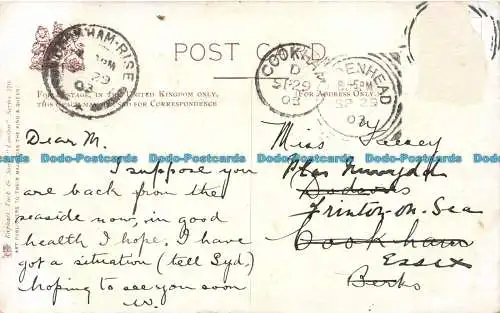 POST CARD
COOKHAM
D
SP 29
03
ENHEAD
8.15PM
SP 29
03
HAM-RISE
29
03
FOR POSTAGE IN THE UNITED KINGDOM ONLY,
THIS SPACE MAY BE USED FOR CORRESPONDENCE
(FOR ADDRESS ONLY.)
Raphael Tuck & Sons' "London" Series
ART PUBLISHERS TO THEIR MAJESTIES THE KING & QUEEN.
Dodo-Postcards Dodo-Postcards Dodo-Postcards Dodo-Postcards Dodo-Postcards
Dear M.
I suppose you
are back from the
seaside now, in good
health I hope. I have
got a situation (tell Syd.)
hoping to see you soon
W.
Miss
Plas
Dodsons
Frinton-on-Sea
Cookham
Essex
Berks